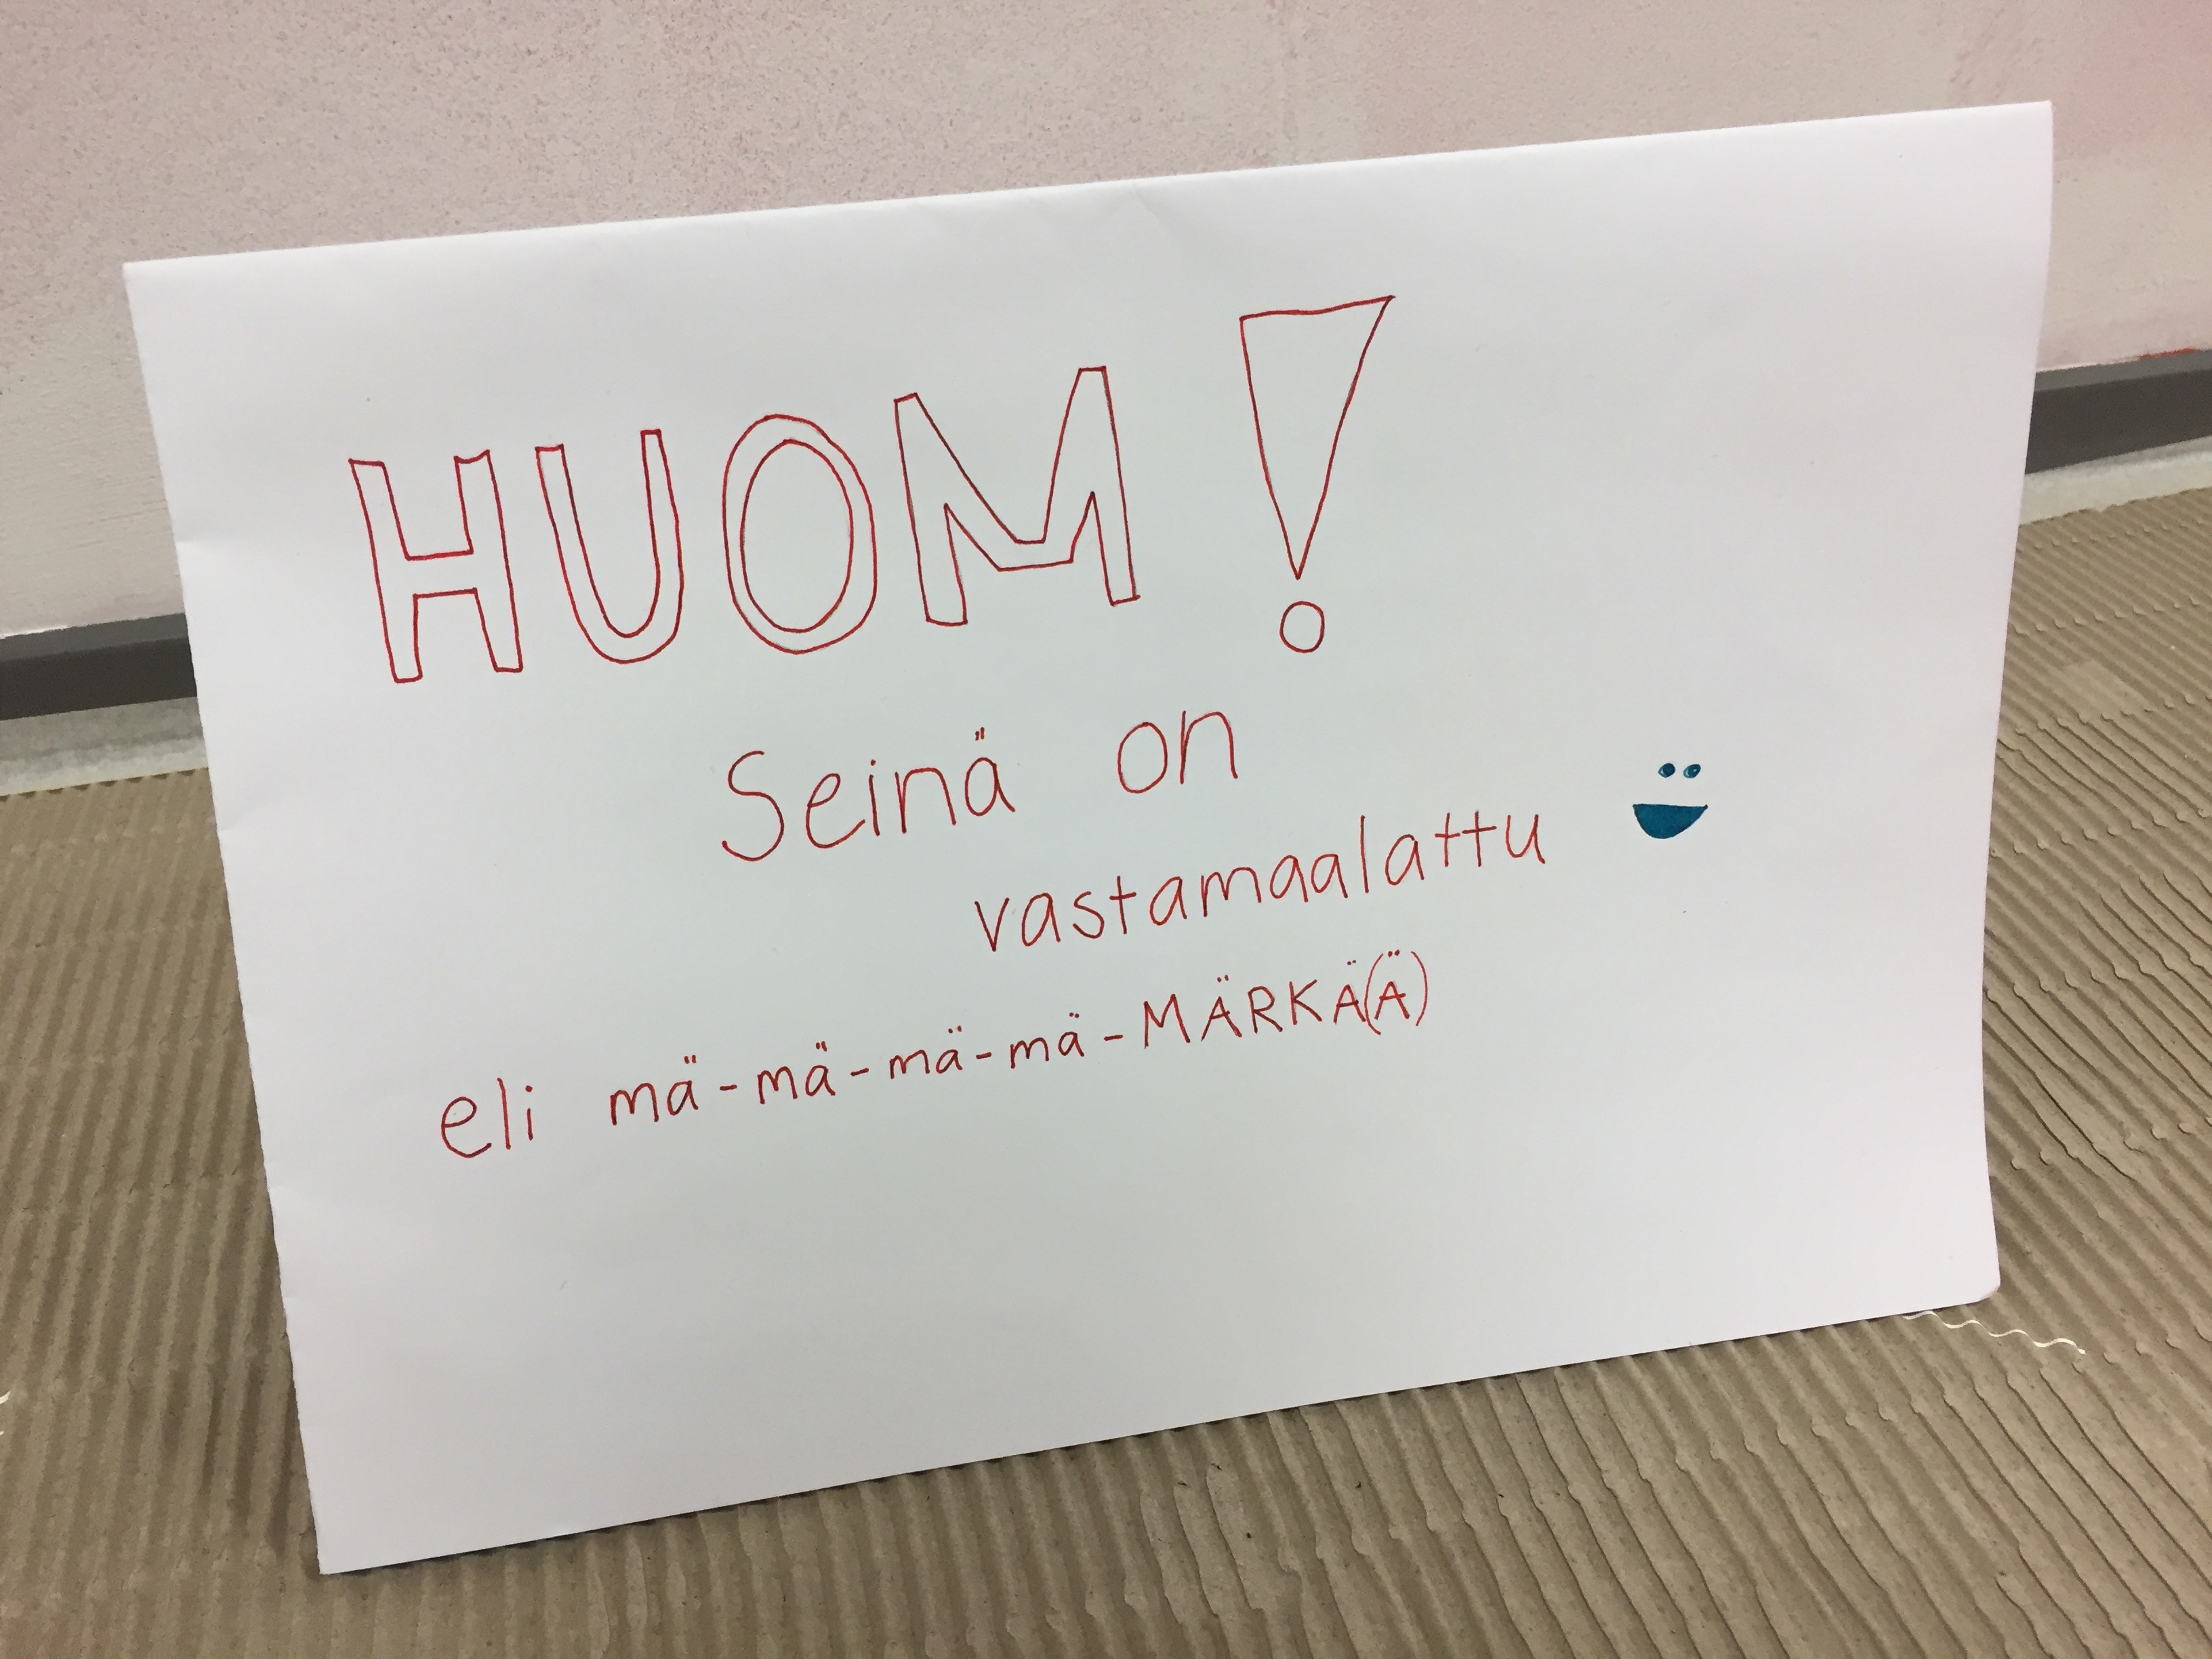 HUOM!
Seinä on
vastamaalattu
eli mä-mä-mä-mä-MÄRKÄ(Ä)